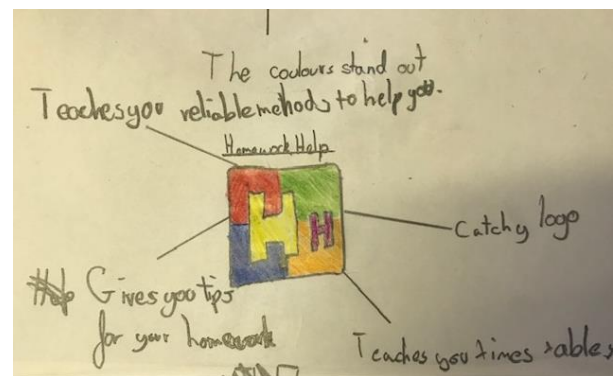 The coulours stand out
Teaches you reliable methods to help you.
Homework Help
H
H
Catchy logo
Gives you tips
for your homework
Teaches you times tables